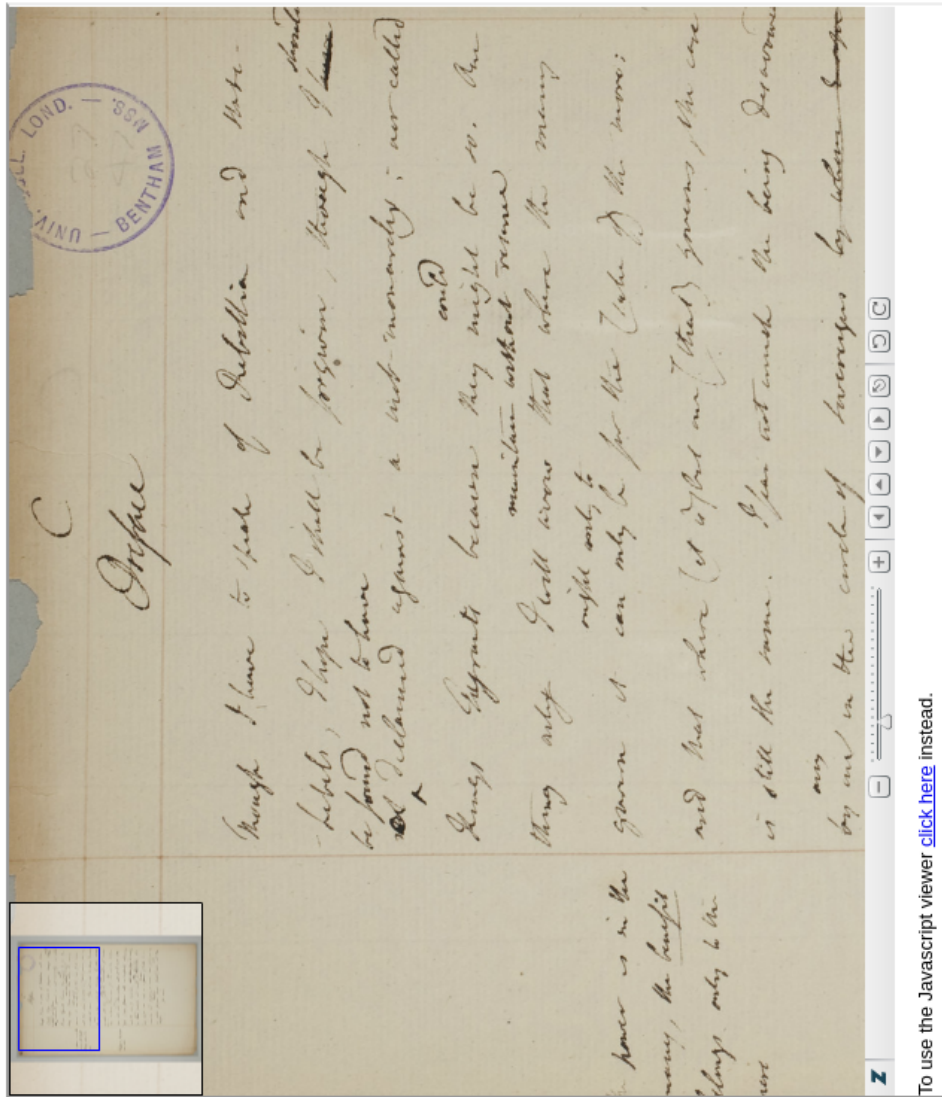 UNIV. COLL. LOND. — MSS. — BENTHAM —
C
Preface
Though I have to speak of Rebellion and Rebe-
-bels, I hope I shall be forgiven, though I should
be found not to have
declaimed against a not-monarchy; nor called
could
Kings Tyrants because they might be so. One
maintain without reserve
thing only I will avow that where the many
ought only to
govern it can only be for the (sake of) the more:
and that where (as is) but one (that) governs, the case
is still the same. I fear not much the being disavowed
any
by one in the circle of sovereigns by whom
power is in the
many, the benefit
belongs only to the
To use the Javascript viewer click here instead.